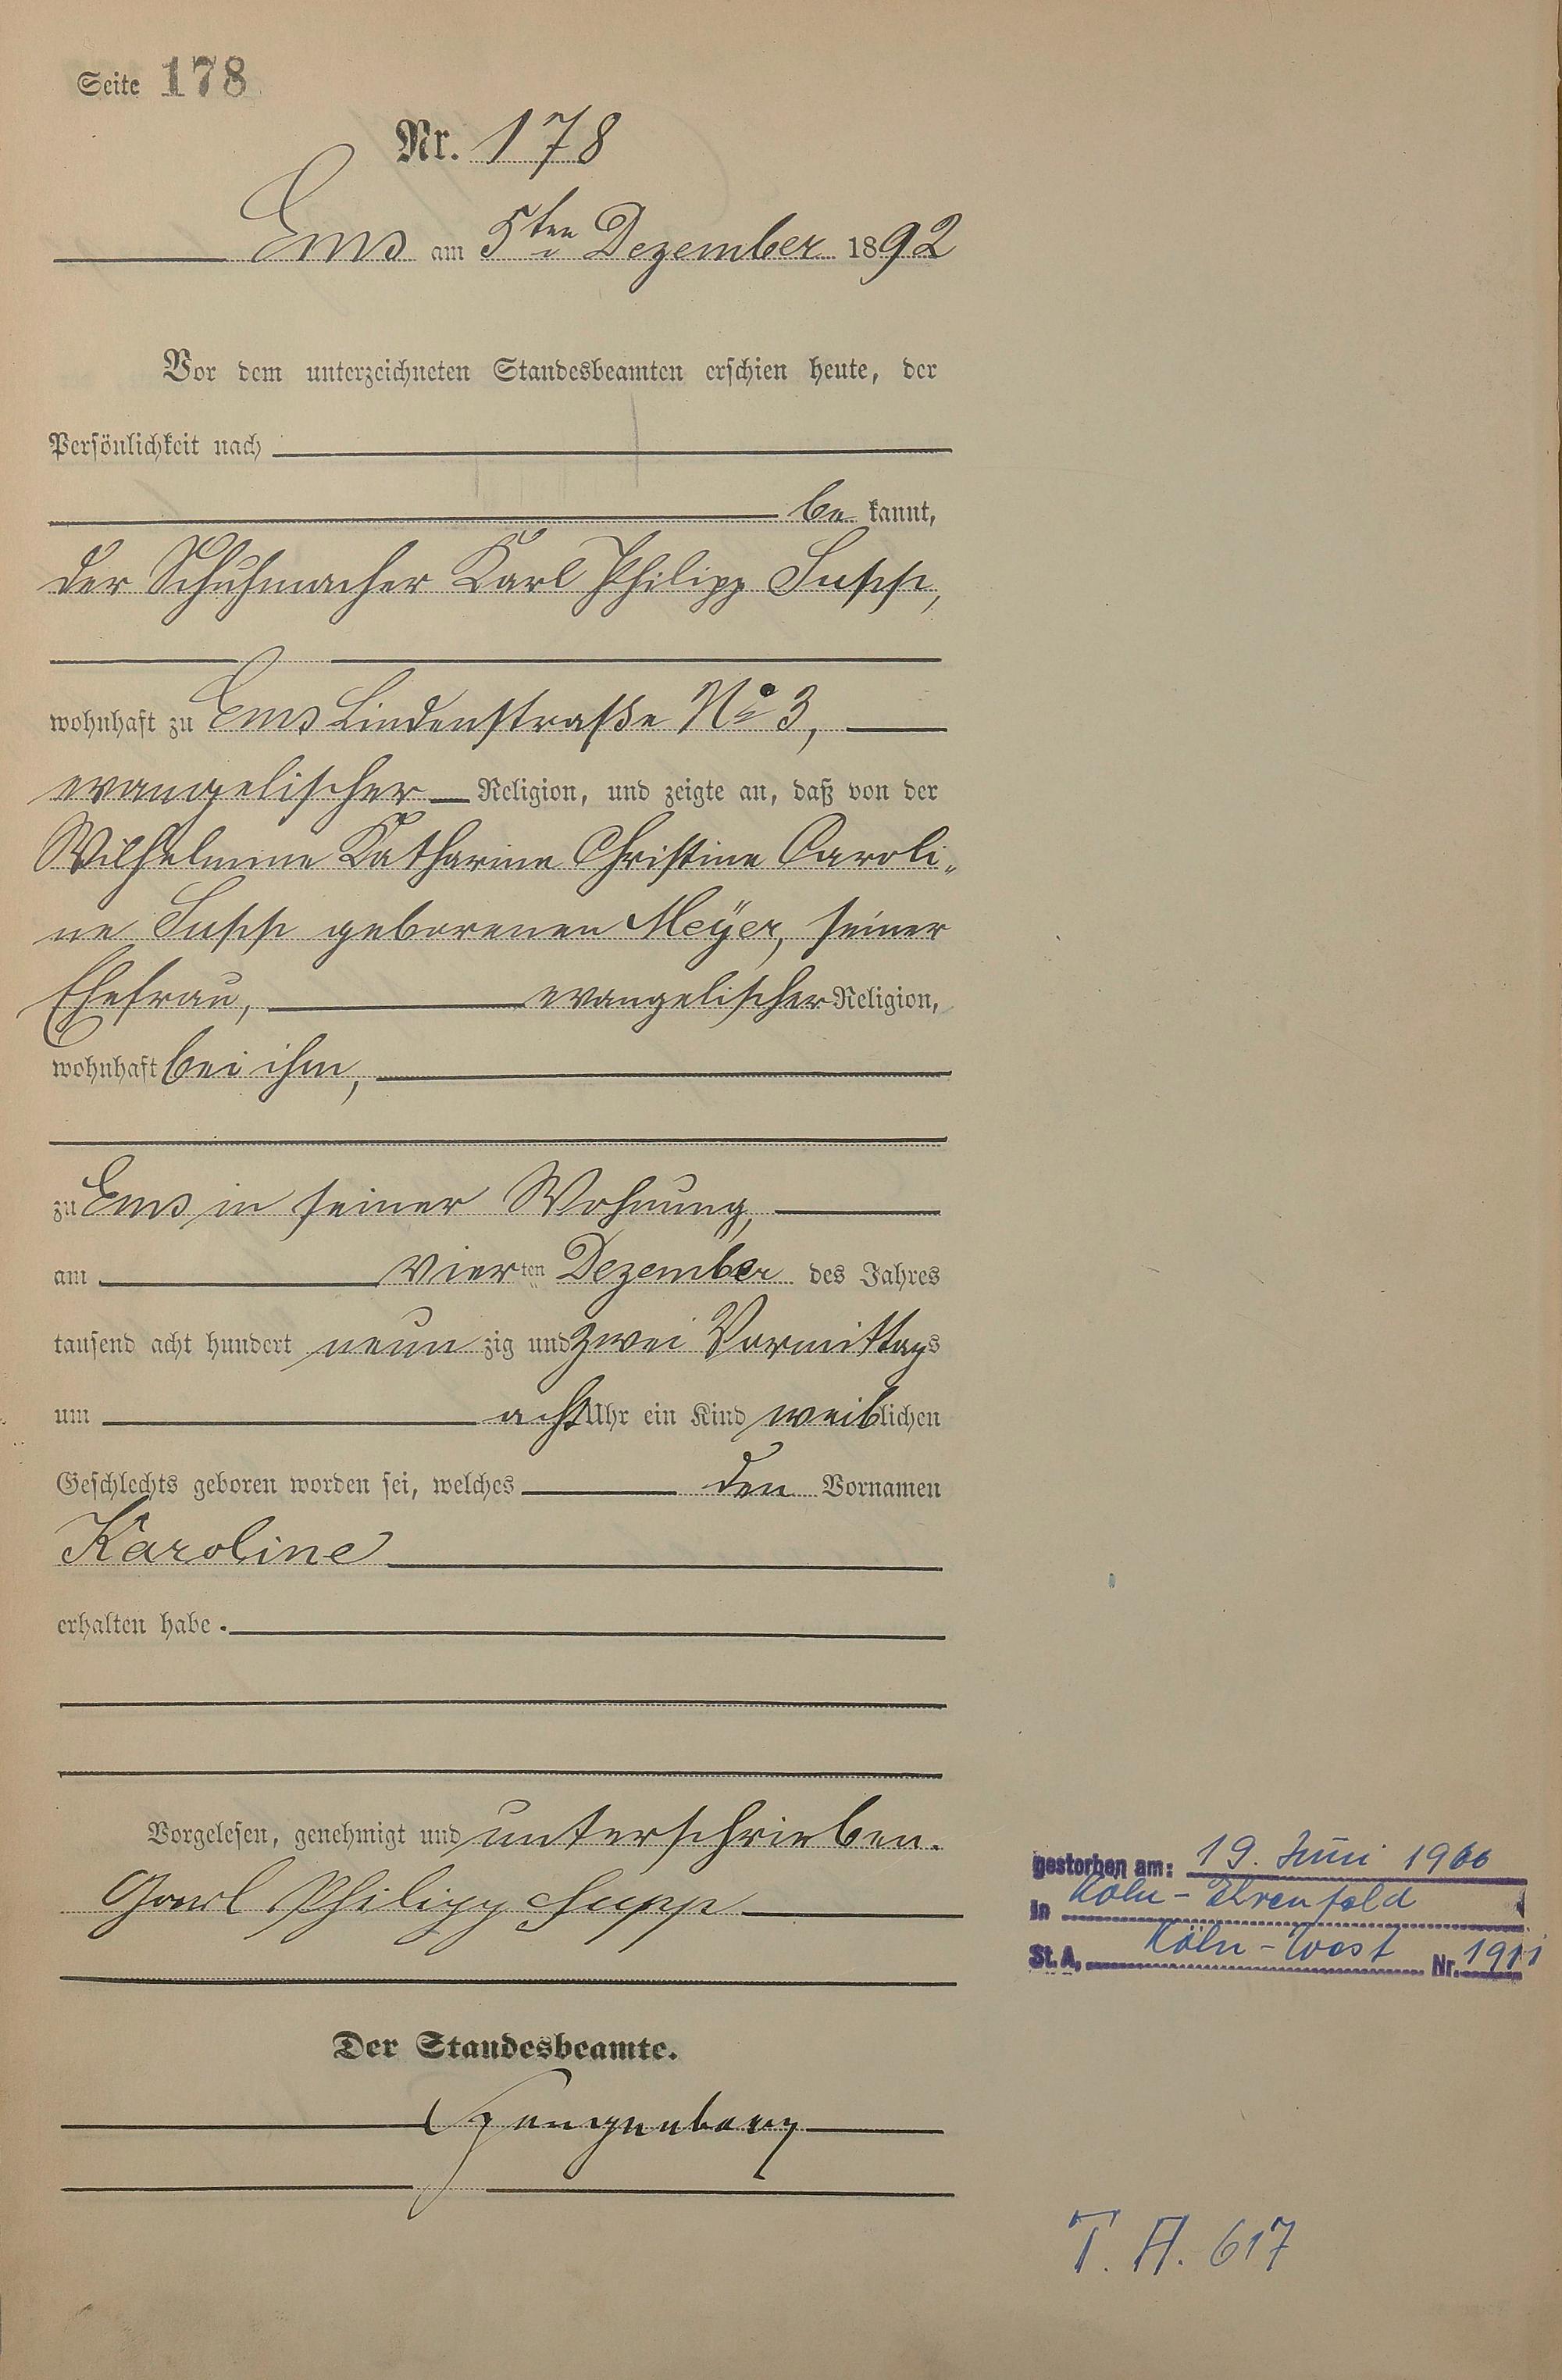 Seite 178
Nr. 178
Ems am 5ten Dezember 1892
Vor dem unterzeichneten Standesbeamten erschien heute, der
Persönlichkeit nach
be kannt,
der Schuhmacher Karl Philipp Supp,
wohnhaft zu Ems Lindenstraße No 3,
evangelischer Religion, und zeigte an, daß von der
Wilhelmine Katharine Christine Caroli-
ne Supp geborenen Meÿer, seiner
Ehefrau, evangelischer Religion,
wohnhaft bei ihm,
zu Ems in seiner Wohnung,
am vierten Dezember des Jahres
tausend acht hundert neun zig und zwei Vormittags
um acht Uhr ein Kind weiblichen
Geschlechts geboren worden sei, welches den Vornamen
Karoline
erhalten habe.
Vorgelesen, genehmigt und unterschrieben.
Carl Philipp Supp
Der Standesbeamte.
gestorben am: 19. Juni 1966
in Köln-Ehrenfeld
St. A. Köln-West Nr. 1911
T. A. 617